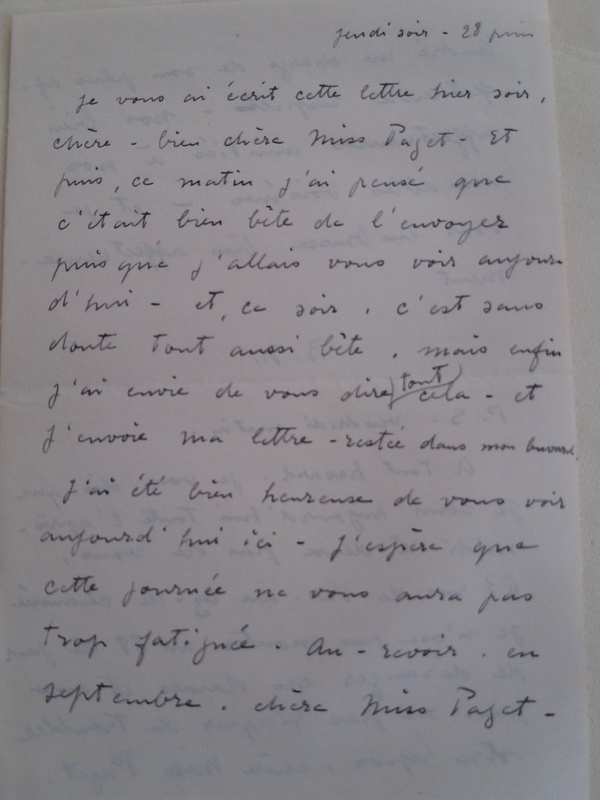 jeudi soir - 28 juin
je vous ai écrit cette lettre hier soir,
chère - bien chère Miss Paget - Et
puis, ce matin j'ai pensé que
c'était bien bête de l'envoyer
puisque j'allais vous voir aujour-
d'hui - et, ce soir, c'est sans
doute tout aussi bête, mais enfin
j'ai envie de vous dire tout cela - et
j'envoie ma lettre - restée dans mon buvard.
J'ai été bien heureuse de vous voir
aujourd'hui ici - J'espère que
cette journée ne vous aura pas
trop fatiguée. Au-revoir, en
septembre, chère Miss Paget -